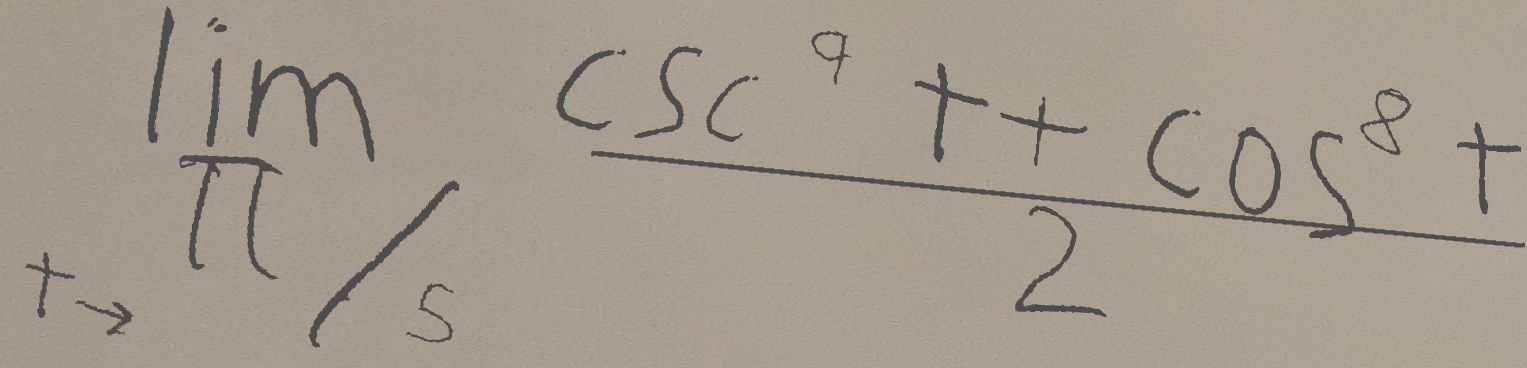 lim t→π/5 (csc⁹ t + cos⁸ t)/2